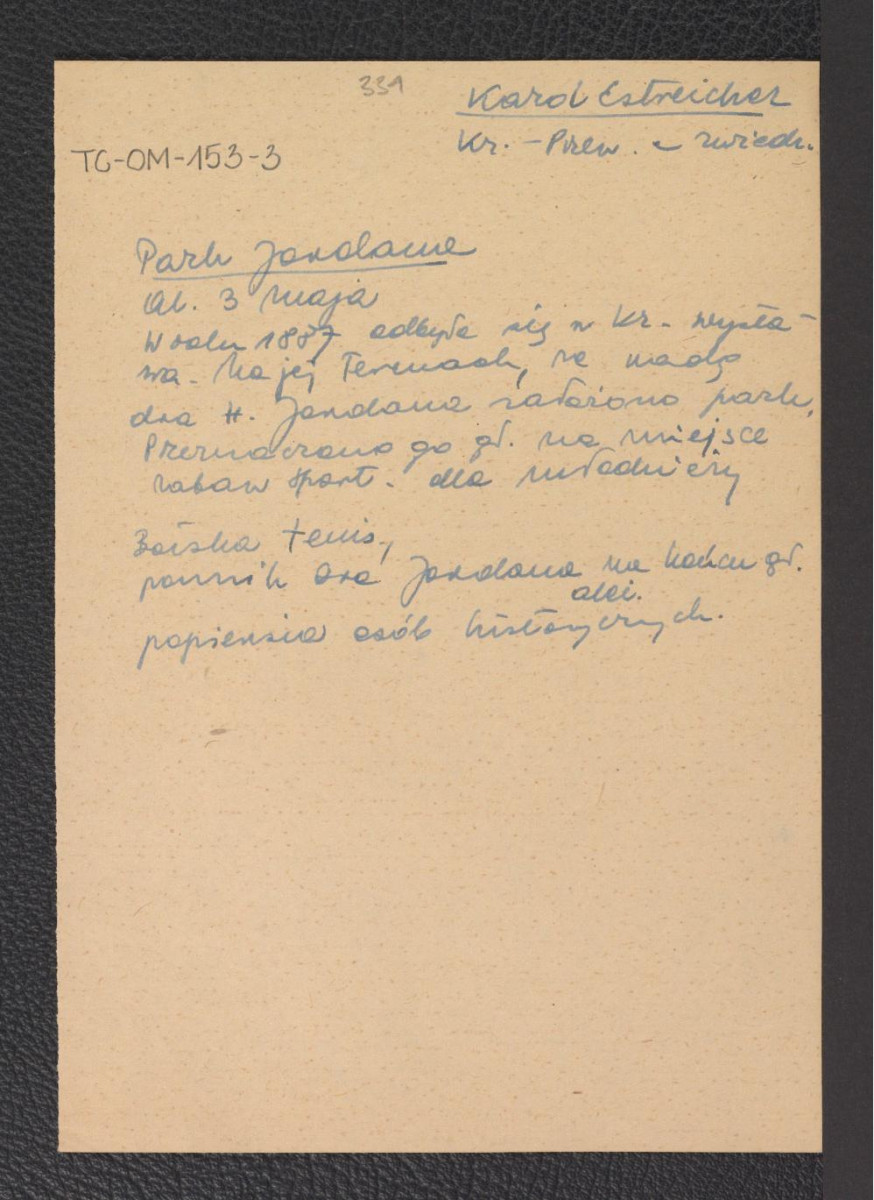 331
Karol Estreicher
Kr. - Przew. zwiedz.
TG-OM-153-3
Park Jordana
Al. 3 maja
W roku 1887 odbyła się w Kr. wysta-
wa. Na jej Terenach, za radą
dra H. Jordana założono park.
Przeznaczono go gł. na miejsce
zabaw sport. dla młodzieży
Boiska tenis,
pomnik Dra Jordana na końcu gł.
alei.
popiersia osób historycznych.